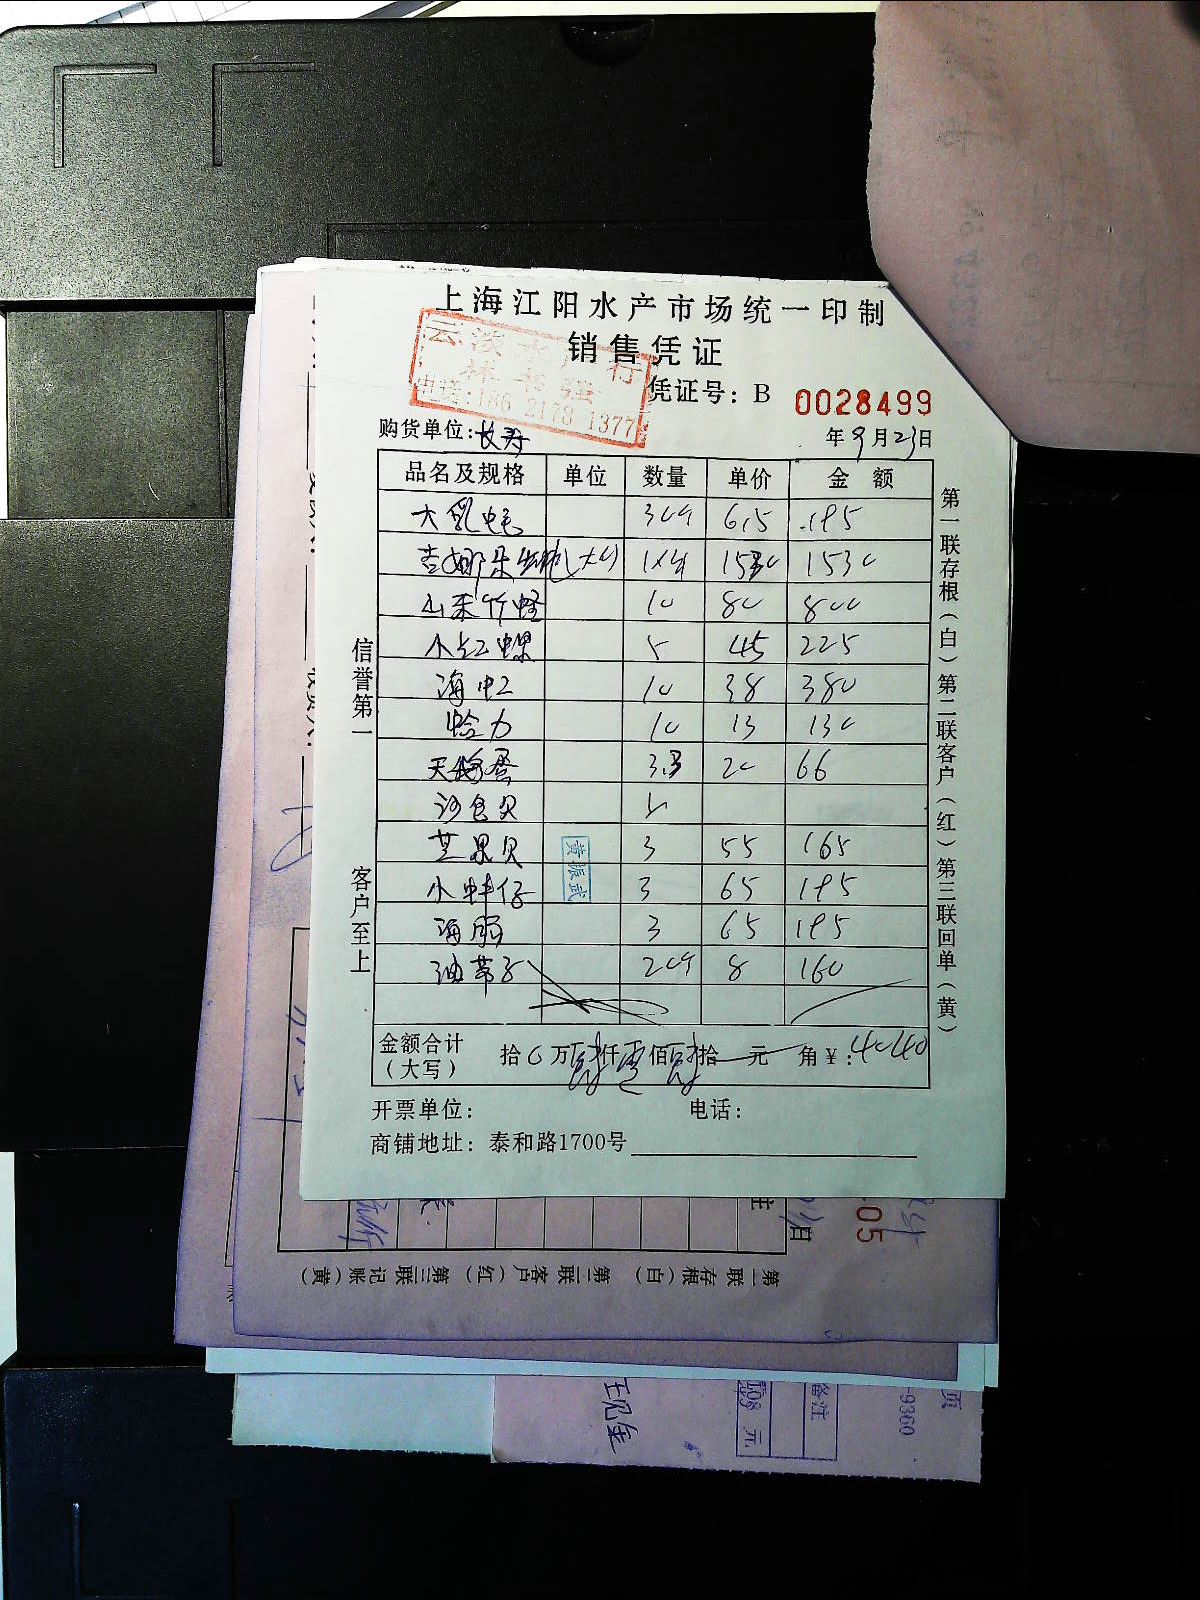 上海江阳水产市场统一印制
销售凭证
电话:186 2178 1377
凭证号: B 0028499
购货单位: 长寿
年9月23日
品名及规格 单位 数量 单价 金额
大乳蚝 30个 6.5 195
吉娜朵 1530 1530
山东竹蛏 10 80 800
小红螺 5 45 225
海虹 10 38 380
蛤力 10 13 130
天鹅蛋 3.3 20 66
沙包贝
芒果贝 3 55 165
小蚌仔 3 65 195
海肠 3 65 195
油带子 20个 8 160
金额合计(大写) 拾0万肆仟零佰肆拾 元 角¥:4040
开票单位: 电话:
商铺地址: 泰和路1700号
信誉第一
客户至上
第一联存根(白)第二联客户(红)第三联回单(黄)
黄振武
05
日
第一联 存根(白) 第二联 客户(红) 第三联 记账(黄)
备注
元
页
-9360